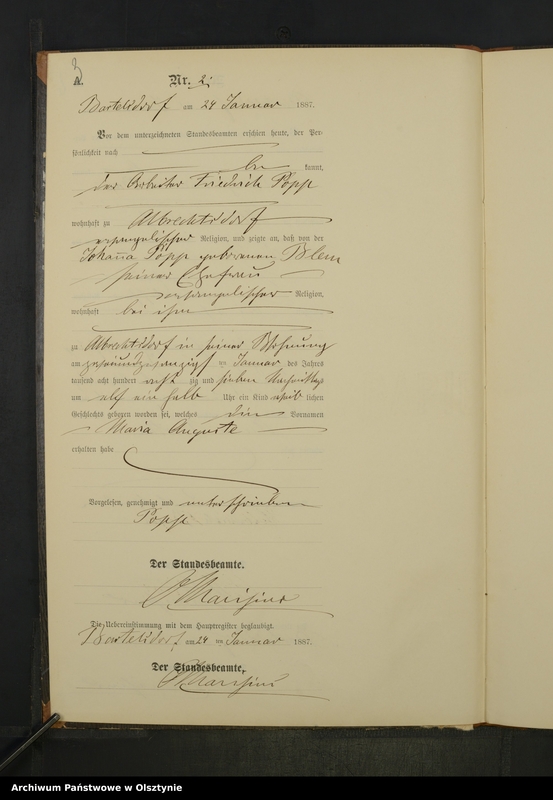 A.
Nr. 2.
Bartelsdorf am 24 Januar 1887.
Vor dem unterzeichneten Standesbeamten erschien heute, der Per-
sönlichkeit nach
be kannt,
der Arbeiter Friedrich Popp
wohnhaft zu Albrechtsdorf
evangelischer Religion, und zeigte an, daß von der
Johanna Popp geborenen
seiner Ehefrau
evangelischer Religion,
wohnhaft bei ihm
zu Albrechtsdorf in seiner Wohnung
am im Januar des Jahres
tausend acht hundert acht zig und sieben Nachmittags
um elf ein halb Uhr ein Kind weib lichen
Geschlechts geboren worden sei, welches die Vornamen
Maria Auguste
erhalten habe
Vorgelesen, genehmigt und unterschrieben
Popp
Der Standesbeamte.
Die Uebereinstimmung mit dem Hauptregister beglaubigt.
Bartelsdorf, am 24 ten Januar 1887.
Der Standesbeamte.
Archiwum Państwowe w Olsztynie